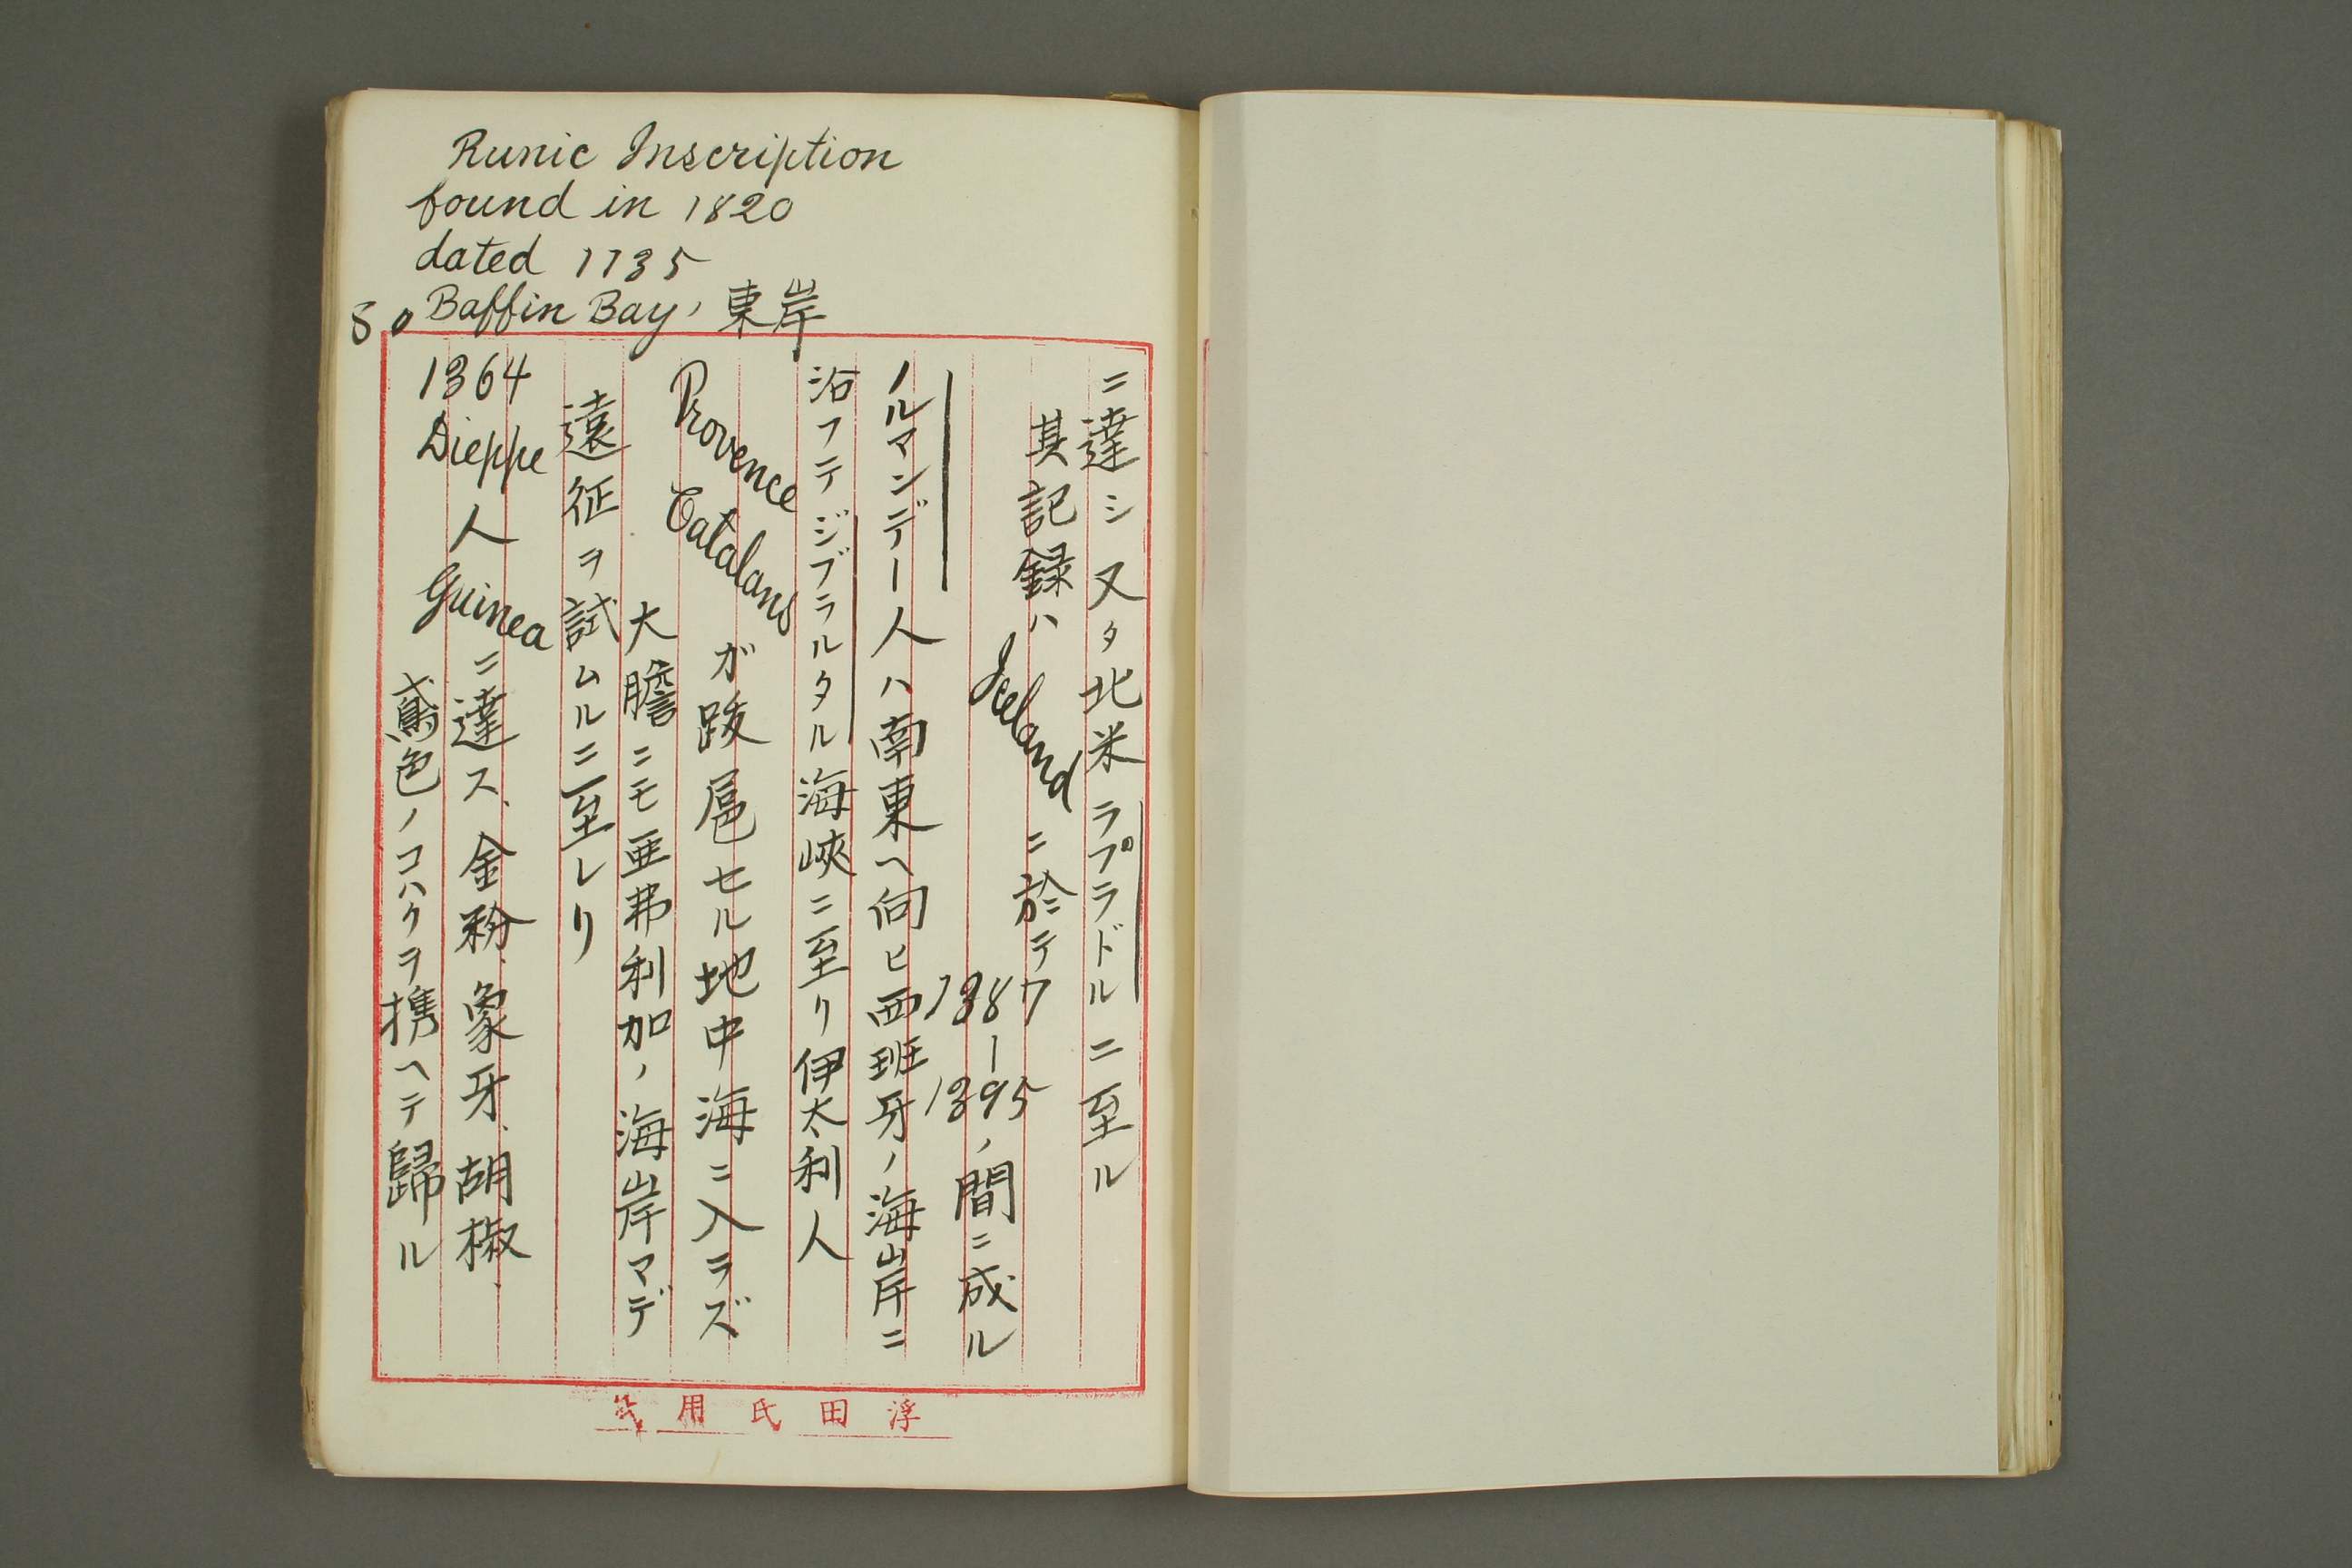 Runic Inscription
found in 1820
dated 1135
Baffin Bay, 東岸
80
ニ達シ又タ北米ラプラドルニ至ル
其記録ハ Iceland ニ於テ
1387-1395ノ間ニ成ル
ノルマンデー人ハ南東ヘ向ヒ西班牙ノ海岸ニ
沿フテジブラルタル海峽ニ至リ伊太利人
Provence Catalans ガ跋扈セル地中海ニ入ラズ
大膽ニモ亜弗利加ノ海岸マデ
遠征ヲ試ムルニ至レリ
1364 Dieppe人 Guinea ニ達ス、金粉、象牙、胡椒、
鳶色ノコハクヲ携ヘテ歸ル
浮田氏用箋